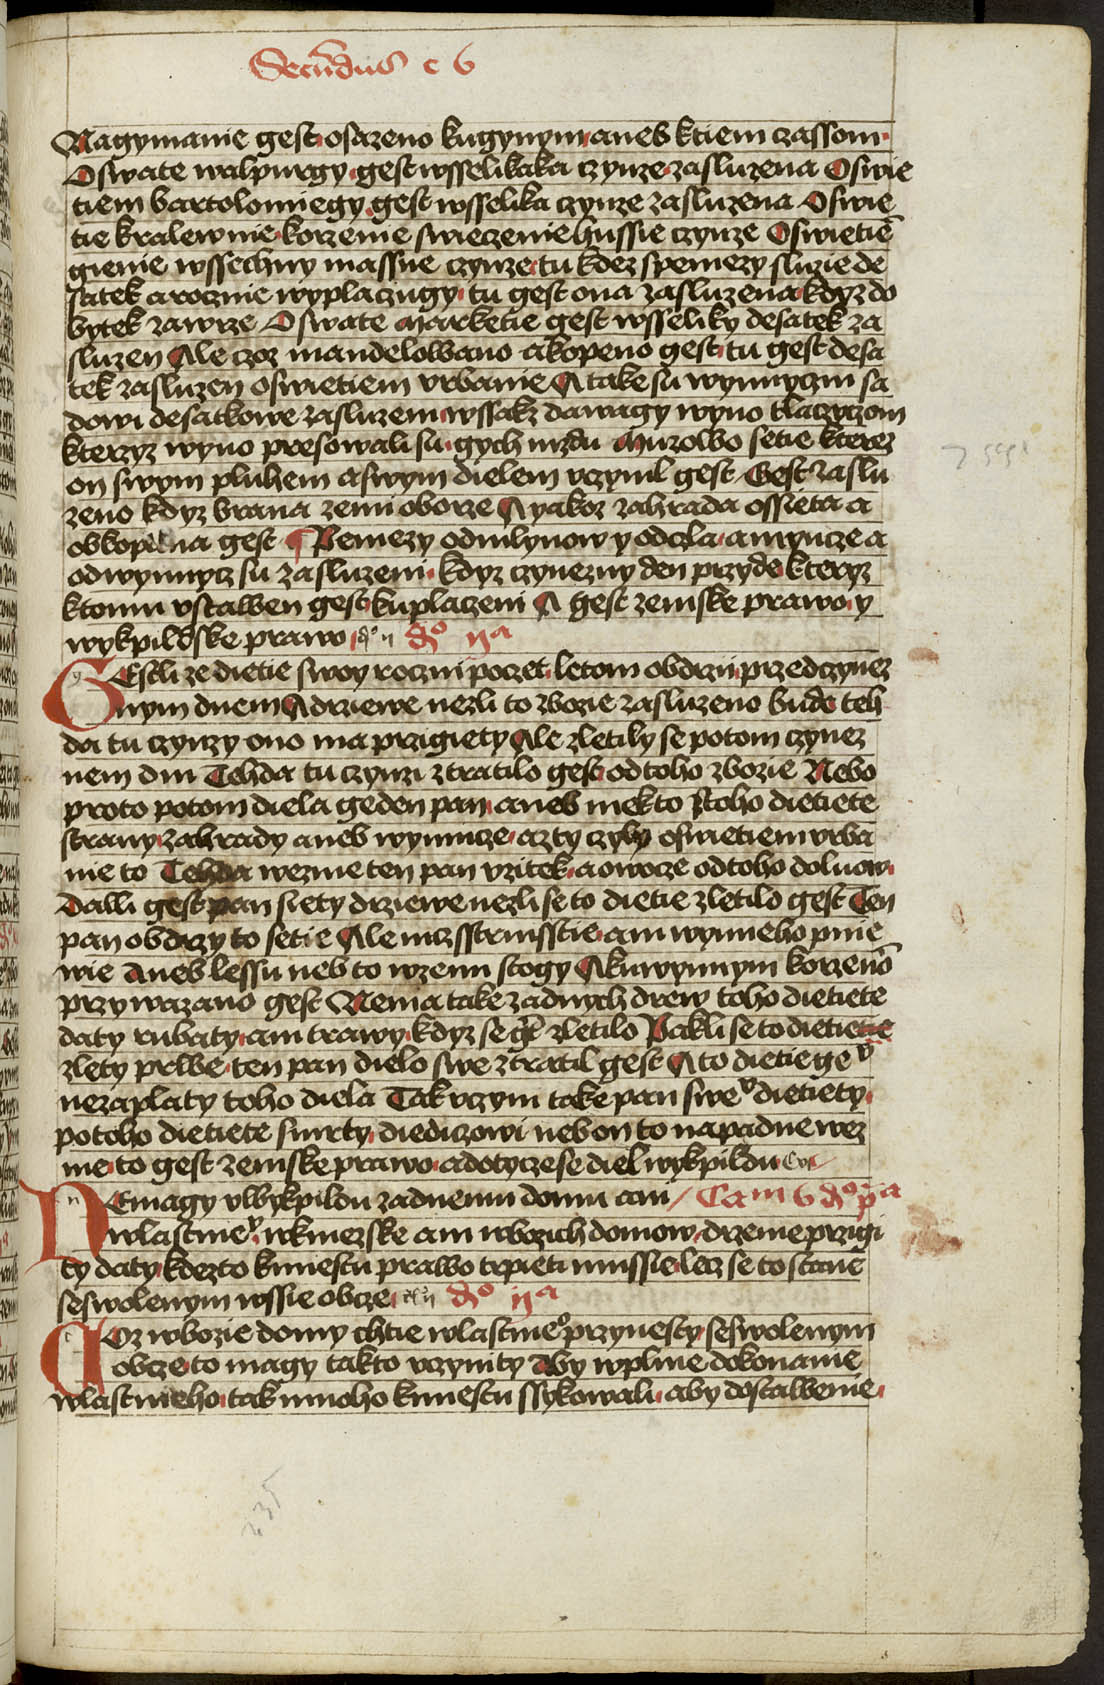 Secundus c 6
Nagymanie gest osazeno kugynym aneb ktiem czassom
Oswate walpurgy gest wsselikaka czynze zasluzena Oswie
tiem bartolomiegy gest wsselika czynze zasluzena Oswie
tie kralewnie korzenie swieczenie hussie czynze Oswietiē
gienie wssechny massne czynze tu kdez s peniezy sluzie de
satek a rocznie wyplaczugy tu gest ona zasluzena kdyz do
bytek zawrze Oswate Marketie gest wsseliky desatek za
sluzen Ale czoz mandelowano akopeno gest tu gest desa
tek zasluzen oswietiem vrbanie A take su wynnyczni sa
dowi desatkowe zasluzeni wssak dawagy wyno tlaczyczom
kterzyz wyno presowali su gych mzdu Murowo setie kterez
on swym pluhem aswym dielem vczynil gest Gest zaslu
zeno kdyz brana zemi oborze A yakoz zahrada ossieta a
obkopana gest Peniezy odmlynow y odczla a myncze a
odwynnycz su zasluzeni kdyz czynezny den przyde kteryz
ktomu vstawen gest kuplaczeni A gest zemske prawo y
wykpildske prawo dº ijª
Gestli ze dietie swoy roczni poczet letom obdrzij przed czynez
nym dnem A drziewe nezli to zbozie zasluzeno bude teh
da tu czynzy ono ma przigiety Ale zletily se potom czynez
nem dni Tehda tu czynzi ztratilo gest od toho zbozie Nebo
proto potom diela geden pan aneb niekto stoho dietiete
strany zahrady aneb wynnicze azty czyly oswietiem vrba
nie to Tehda wezme ten pan vzitek a owocze od toho doluow
Dalli gest pan siety drziewe nezli se to dietie zletilo gest Ten
pan obdrzy to setie Ale nicz sstrnisstie ani wynneho pnie
wie Aneb lessu neb to wzemi stogy A kuwynnym korzenō
przywazano gest Nema take zadnych drew toho dietiete
daty rubaty ani trawy kdyz se gt zletilo Pakli se to dietiete
zlety prwe ten pan dielo swe ztratil gest A to dietie geº
nezaplaty toho diela Tak vczyni take pan sweº dietiety
po toho dietiete smrty diediczowi neb on to napadne wez
me to gest zemske prawo a dotycze se diel wykpildu
Nemagy vwykpildu zadnemu domu ani Cam 6 dº pª
wlastnieº wkmezske ani wbozich domow drzenie przigi
ty daty kdezto kmiestu prawo trpieti mussie lecz se to stane
seswolenym wssie obcze dº ijª
Coz wbozie domy chtie wlastnieº przynesty seswolenym
obcze to magy takto vczynity Aby wplnie dokonanie
wlastnieho tak mnoho kmiestu ssykowali aby dostawenie